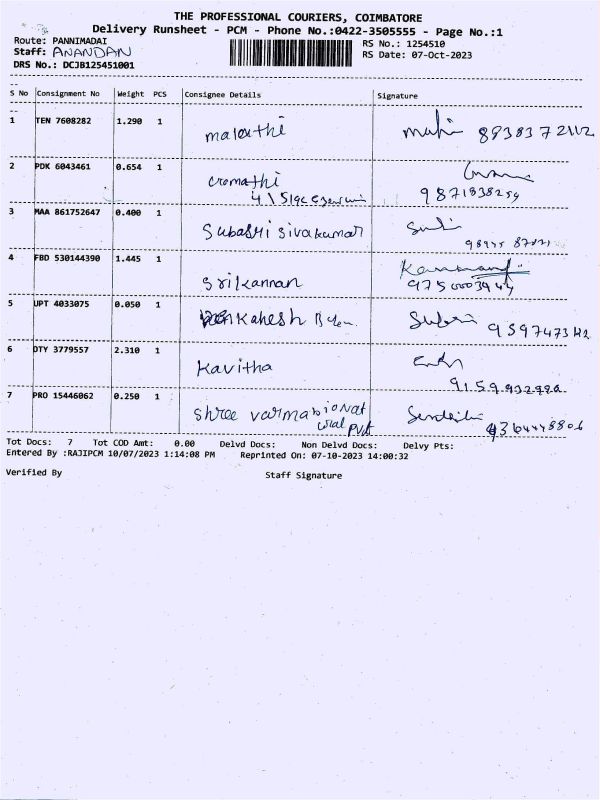 THE PROFESSIONAL COURIERS, COIMBATORE
Delivery Runsheet - PCM - Phone No.:0422-3505555 - Page No.:1
Route: PANNIMADAI RS No.: 1254510
Staff: ANANDAN RS Date: 07-Oct-2023
DRS No.: DCJB125451001
S No Consignment No Weight PCS Consignee Details Signature
1 TEN 7608282 1.290 1 malathi 8938372112
2 PDK 6043461 0.654 1 cromathi
9871838254
3 MAA 861752647 0.400 1 Subasri sivakumar
4 FBD 530144390 1.445 1 Srikannan
9750003944
5 UPT 4033075 0.050 1
6 DTY 3779557 2.310 1 Kavitha
7 PRO 15446062 0.250 1 Shree varma
Tot Docs: 7 Tot COD Amt: 0.00 Delvd Docs: Non Delvd Docs: Delvy Pts:
Entered By :RAJIPCM 10/07/2023 1:14:08 PM Reprinted On: 07-10-2023 14:00:32
Verified By Staff Signature